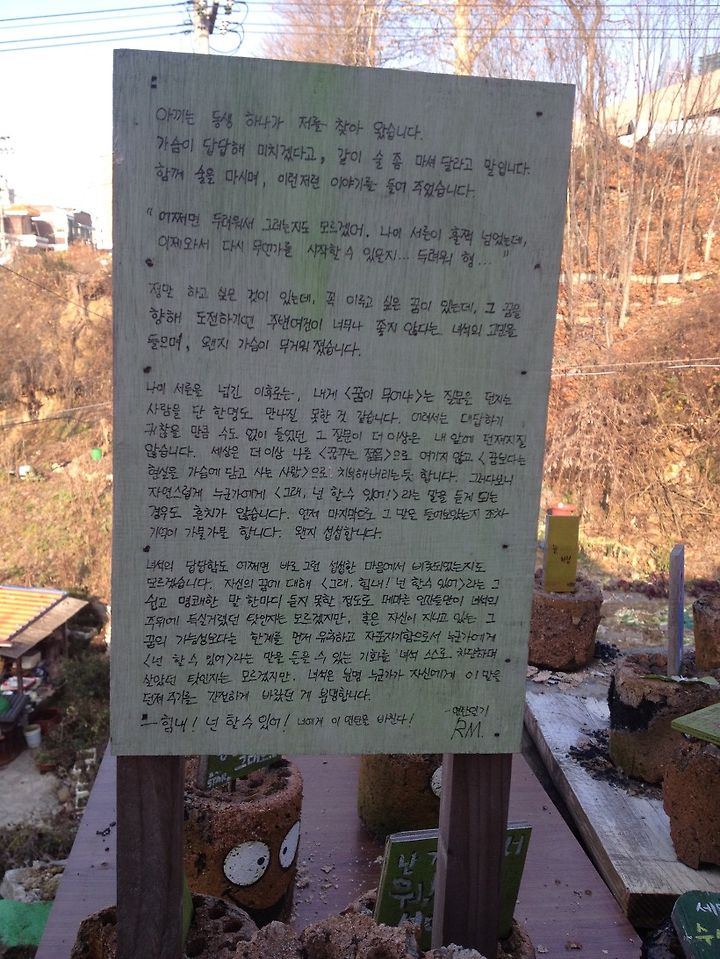 아끼는 동생 하나가 저를 찾아 왔습니다.
가슴이 답답해 미치겠다고, 같이 술 좀 마셔 달라고 말입니다.
함께 술을 마시며, 이런저런 이야기를 들어 주었습니다.
"어쩌면 두려워서 그러는지도 모르겠어. 나이 서른이 훌쩍 넘었는데,
이제와서 다시 무언가를 시작할 수 있을지... 두려워 형..."
정말 하고 싶은 것이 있는데, 꼭 이루고 싶은 꿈이 있는데, 그 꿈을
향해 도전하기엔 주변여건이 너무나 좋지 않다는 녀석의 고민을
들으며, 왠지 가슴이 무거워 졌습니다.
나이 서른을 넘긴 이후로는, 내게 <꿈이 무어냐>는 질문을 던지는
사람을 단 한명도 만나질 못한 것 같습니다. 어려서는 대답하기
귀찮을 만큼 수도 없이 들었던 그 질문이 더 이상은 내 앞에 던져지질
않습니다. 세상은 더 이상 나를 <꿈꾸는 젊음>으로 여기지 않고 <꿈보다는
현실을 가슴에 담고 사는 사람>으로 치부해버리는듯 합니다. 그러다보니
자연스럽게 누군가에게 <그래, 넌 할 수 있어!>라는 말을 듣게 되는
경우도 흔치가 않습니다. 언제 마지막으로 그 말을 들어보았는지 조차
기억이 가물가물 합니다. 왠지 섭섭합니다.
녀석의 답답함도 어쩌면 바로 그런 섭섭한 마음에서 비롯되었는지도
모르겠습니다. 자신의 꿈에 대해 <그래, 힘내! 넌 할 수 있어>라는 그
쉽고 명쾌한 말 한마디 듣지 못할 정도로 메마른 인간들만이 녀석의
주위에 득실거렸던 탓인지는 모르겠지만, 혹은 자신이 지니고 있는 그
꿈의 가능성보다는 한계를 먼저 유추하고 자포자기함으로서 누군가에게
<넌 할 수 있어>라는 말을 들을 수 있는 기회를 녀석 스스로 차단하며
살았던 탓인지는 모르겠지만, 녀석은 분명 누군가가 자신에게 이 말을
던져 주기를 간절하게 바랬던 게 분명합니다.
— 힘내! 넌 할 수 있어! 너에게 이 연탄을 바친다!
-연탄일기
RM.
난